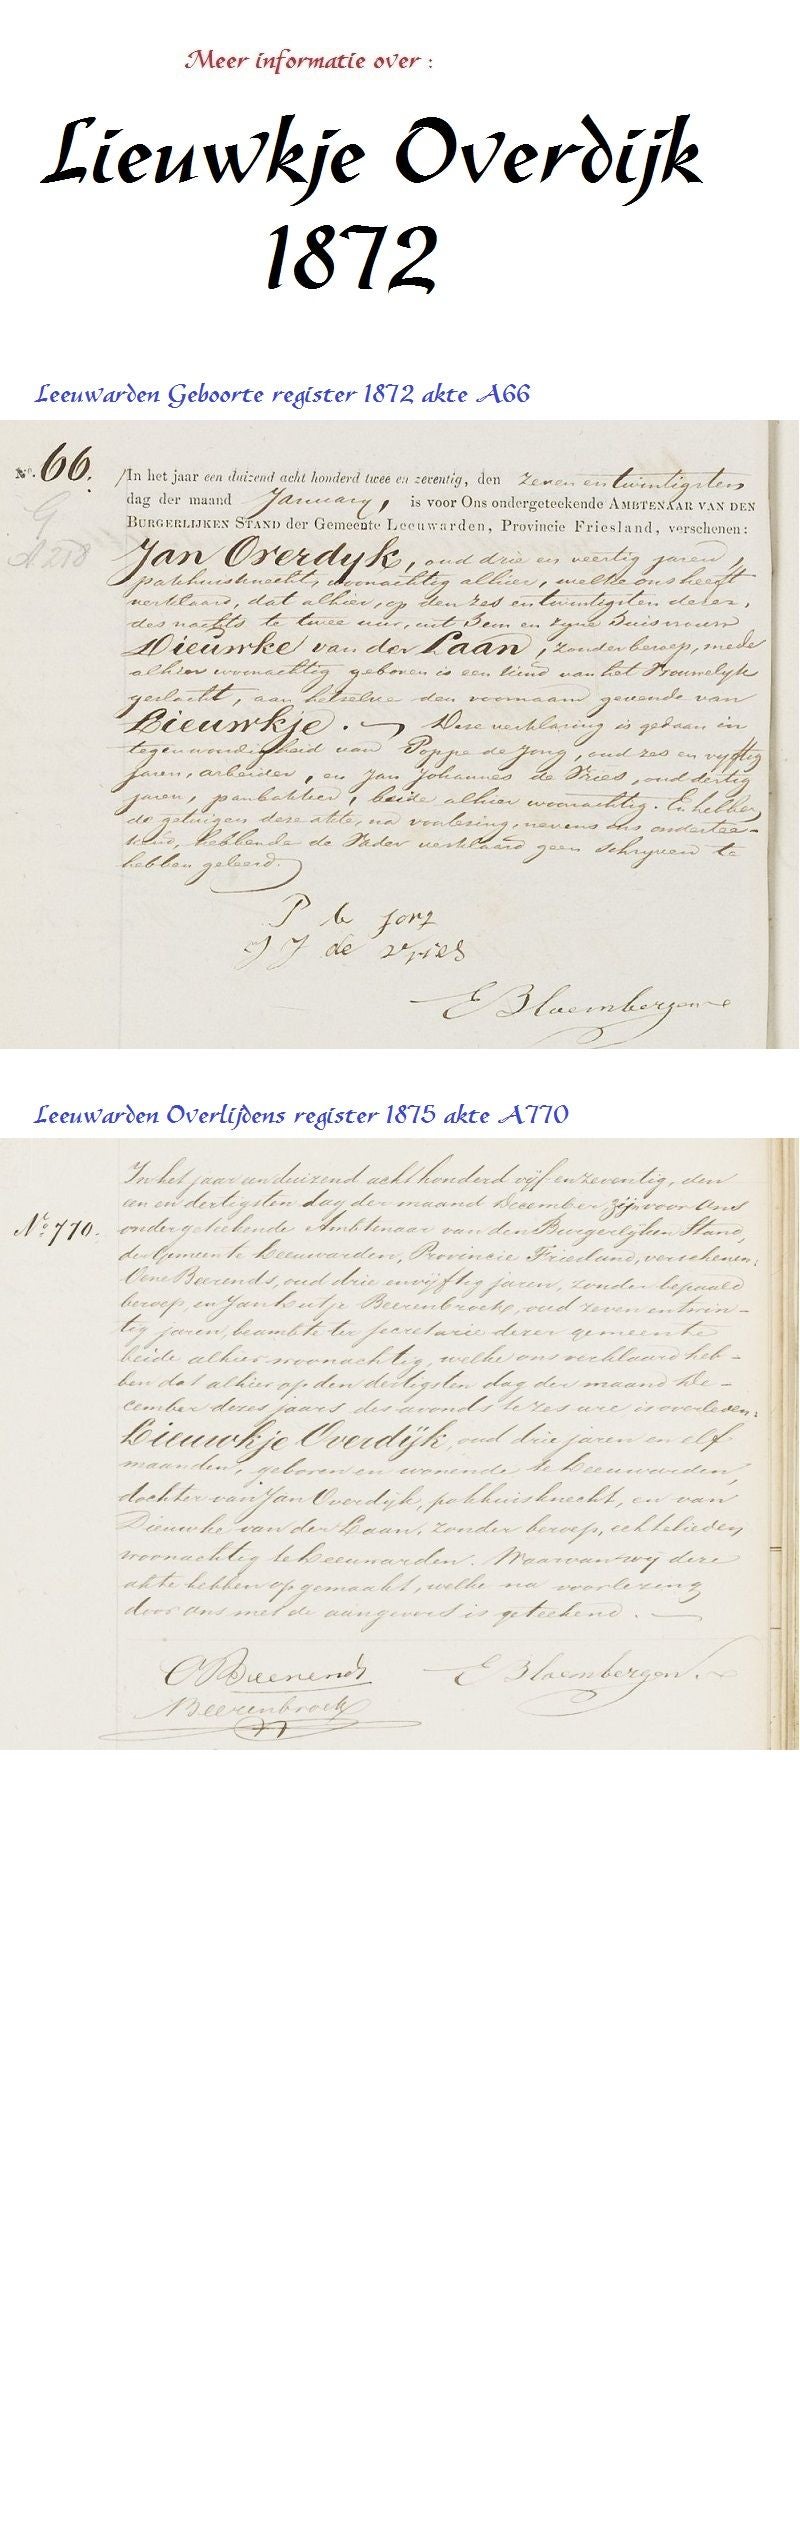 Meer informatie over :
Lieuwkje Overdijk
1872
Leeuwarden Geboorte register 1872 akte A66
No. 66.
G
A 218
In het jaar een duizend acht honderd twee en zeventig, den zeven en twintigsten
dag der maand January, is voor Ons ondergeteekende AMBTENAAR VAN DEN
BURGERLIJKEN STAND der Gemeente Leeuwarden, Provincie Friesland, verschenen:
Jan Overdyk, oud drie en veertig jaren,
pakhuisknecht, woonachtig alhier, welke ons heeft
verklaard, dat alhier, op den zes en twintigsten dezer,
des nachts te twee uur, uit hem en zyne huisvrouw
Dieuwke van der Laan, zonder beroep, mede
alhier woonachtig geboren is een kind van het Vrouwelyk
geslacht, aan hetzelve den voornaam gevende van
Lieuwkje. Deze verklaring is gedaan in
tegenwoordigheid van Poppe de Jong, oud zes en vyftig
jaren, arbeider, en Jan Johannes de Vries, oud dertig
jaren, panbakker, beide alhier woonachtig. En hebben
de getuigen deze akte, na voorlezing, nevens ons onderteekend, hebbende de Vader verklaard geen schryven te
hebben geleerd.
P de jong
J J de vries
E Bloembergen
Leeuwarden Overlijdens register 1875 akte A770
No. 770.
In het jaar een duizend acht honderd vijf en zeventig, den
een en dertigsten dag der maand December zijn voor Ons
ondergeteekende Ambtenaar van den Burgerlijken Stand,
der Gemeente Leeuwarden, Provincie Friesland, verschenen:
Oene Beerends, oud drie en vijftig jaren, zonder bepaald
beroep, en Jan Beerenbroek, oud zeven en twin-
tig jaren, beambte ter secretarie dezer gemeente
beide alhier woonachtig, welke ons verklaard heb-
ben dat alhier op den dertigsten dag der maand De-
cember dezes jaars des avonds te zes ure is overleden:
Lieuwkje Overdijk, oud drie jaren en elf
maanden, geboren en wonende te Leeuwarden,
dochter van Jan Overdijk, pakhuisknecht, en van
Dieuwke van der Laan, zonder beroep, echtelieden
woonachtig te Leeuwarden. Waarvan wij deze
akte hebben opgemaakt, welke na voorlezing
door ons met de aangevers is geteekend.
O Beerends
E Bloembergen
Beerenbroek